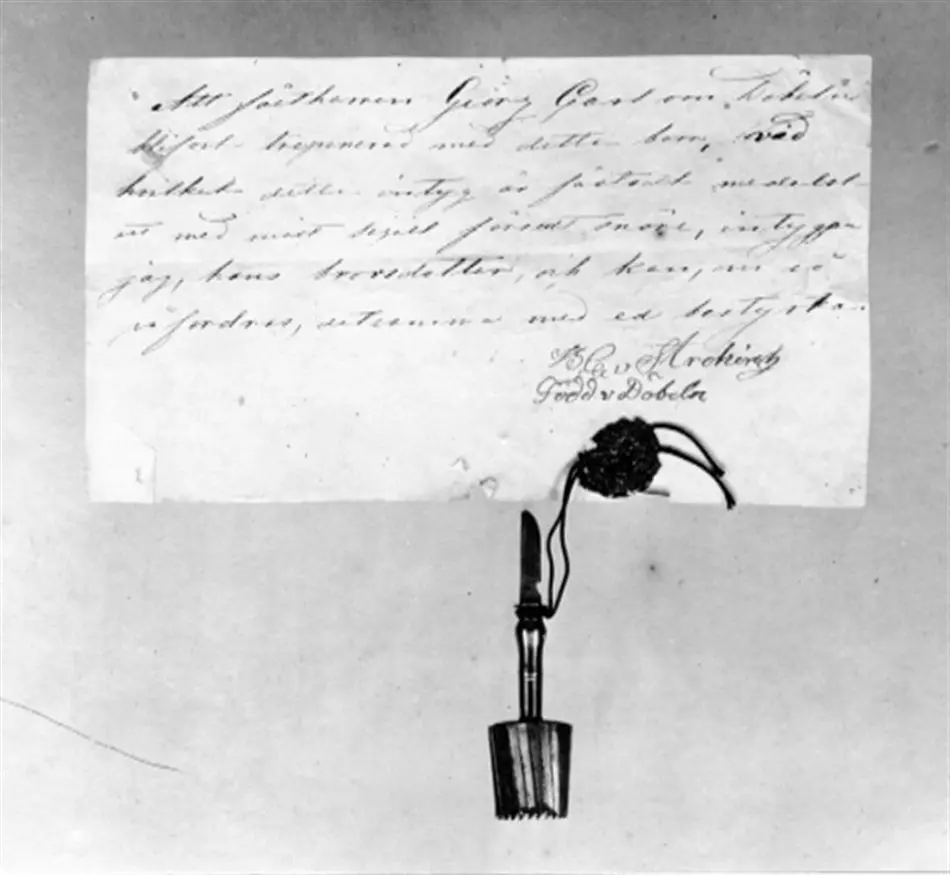 Att friherren Georg Carl von Döbeln
blifvit trepenerad med detta borr, vid
hvilket detta intyg är fästadt medelst
ett med mitt sigill försedt snöre, intygar
jag, hans brorsdotter, och kan, om så
påfordras, detsamma med ed bestyrka.
v Strokirch
Född v Döbeln